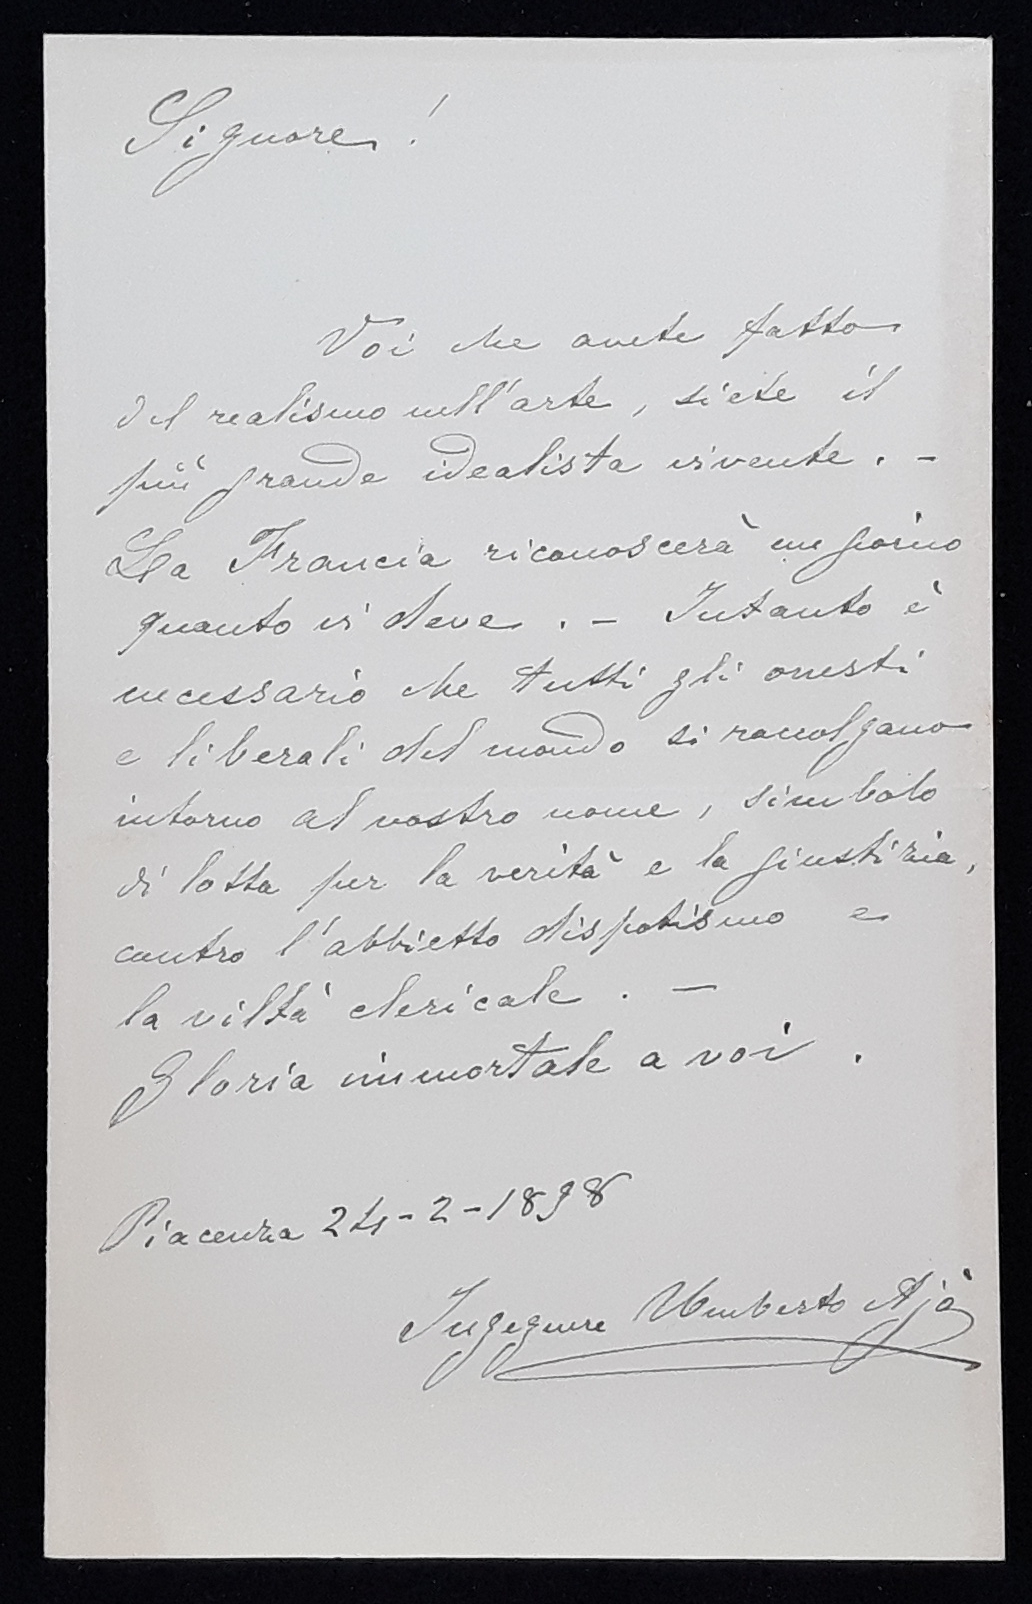 Signore!
Voi che avete fatto
del realismo nell'arte, siete il
più grande idealista vivente. -
La Francia riconoscerà un giorno
quanto vi deve. - Intanto è
necessario che tutti gli onesti
e liberali del mondo si raccolgano
intorno al vostro nome, simbolo
di lotta per la verità e la giustizia,
contro l'abbietto dispotismo e
la viltà clericale. -
Gloria immortale a voi.
Piacenza 24-2-1898
Ingegnere Umberto Ajà